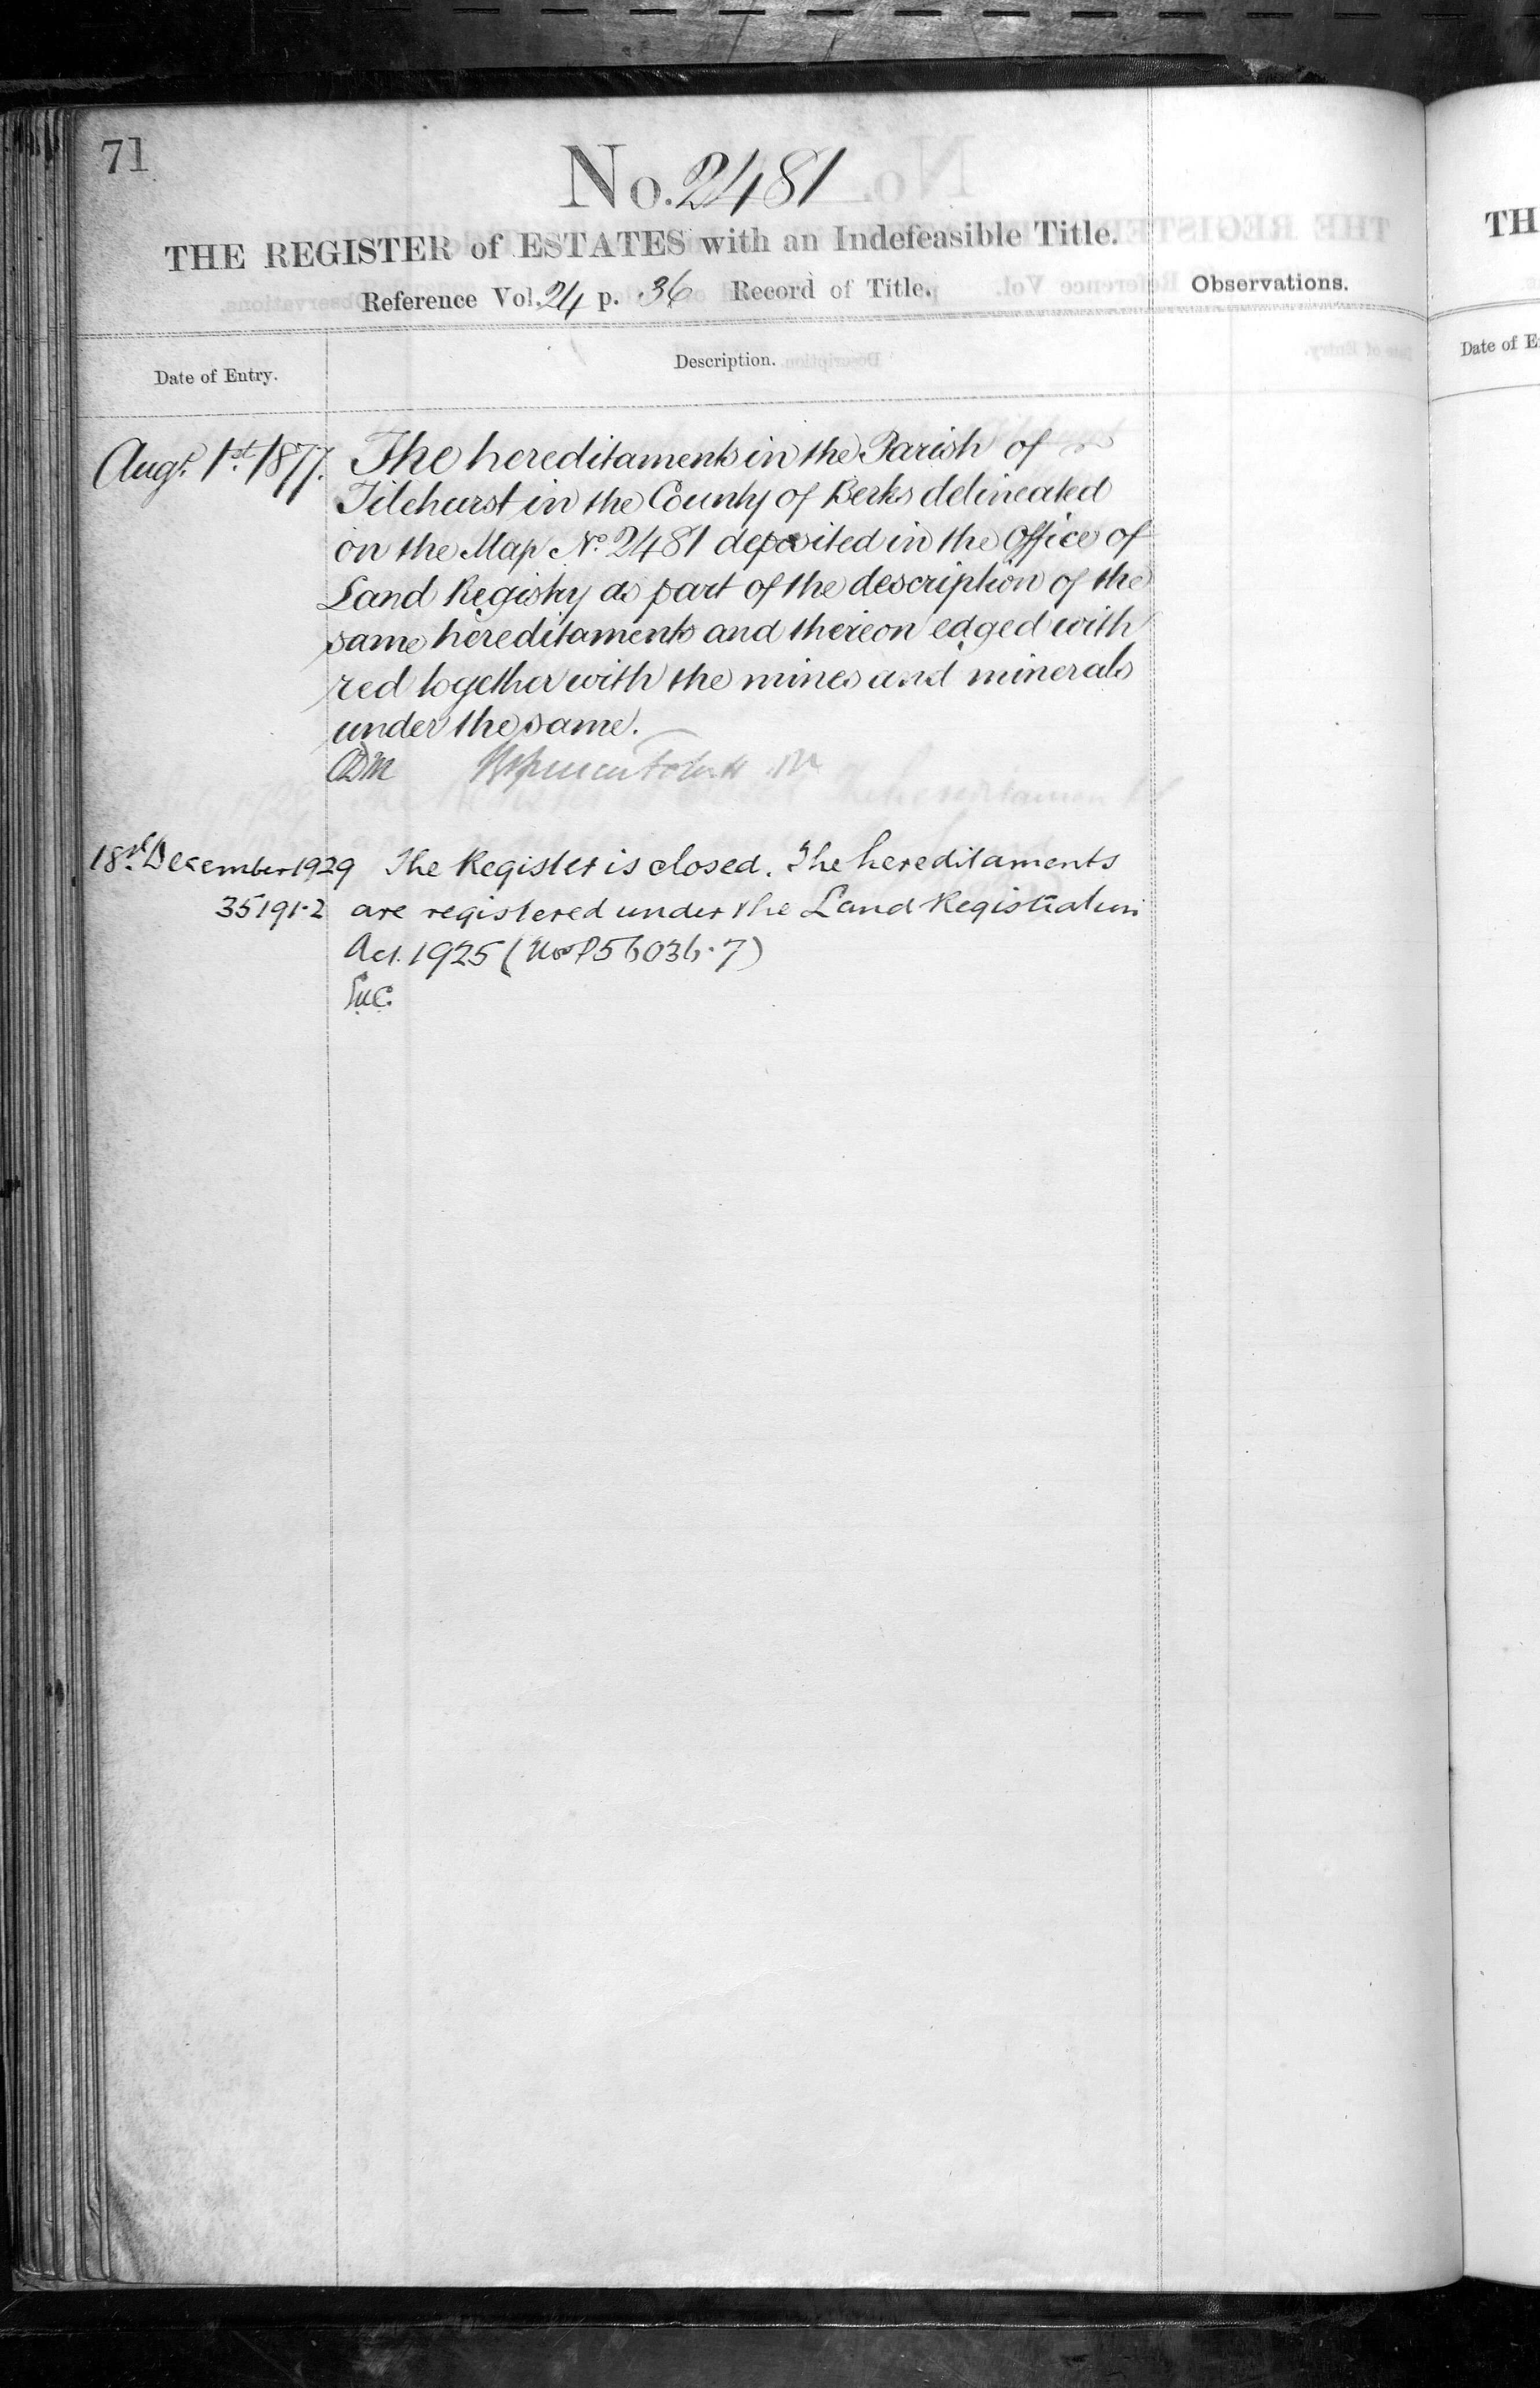 71
No. 2481
THE REGISTER of ESTATES with an Indefeasible Title.
Reference Vol. 24 p. 36 Record of Title.
Observations.
Date of Entry.
Description.
Augt. 1st. 1877. The hereditaments in the Parish of
Tilehurst in the County of Berks delineated
on the Map No. 2481 deposited in the Office of
Land Registry as part of the description of the
same hereditaments and thereon edged with
red together with the mines and minerals
under the same.
18th. December 1929 The Register is closed. The hereditaments
35191·2 are registered under the Land Registration
Act. 1925 (Nos P56036·7)
TH
Date of E